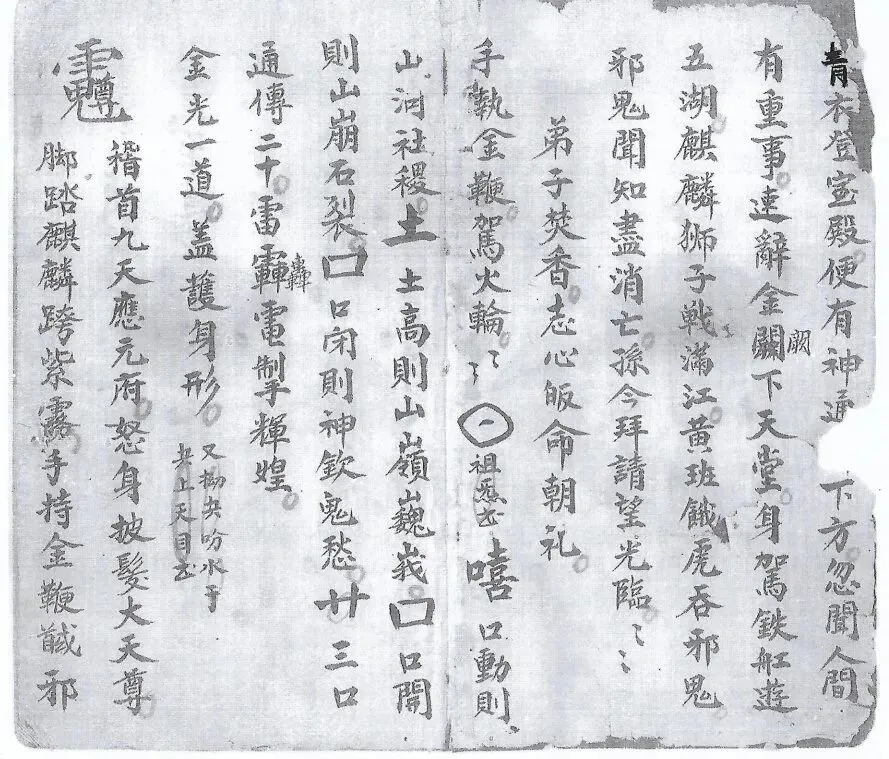 青衣登宝殿便有神通 下方忽聞人間
有重事速辭金闕下天堂身駕鉄船遊
五湖麒麟狮子戦滿江黄班餓虎吞邪鬼
邪鬼聞知盡消亡孫今拜請望光臨〻〻
弟子焚香志心皈命朝礼
手執金鞭駕火輪〻〻 祖 嘻口動則
山河社稷土土高則山嶺巍峩口口開
則山崩石裂口口闭則神欽鬼愁廿三口
通傳二十雷霳轟電掣輝煌
金光一道盖護身形 又 吩水于
上天目
稽首九天應元府怒身披髮大天尊
脚踏麒麟跨紫霧手持金鞭馘邪